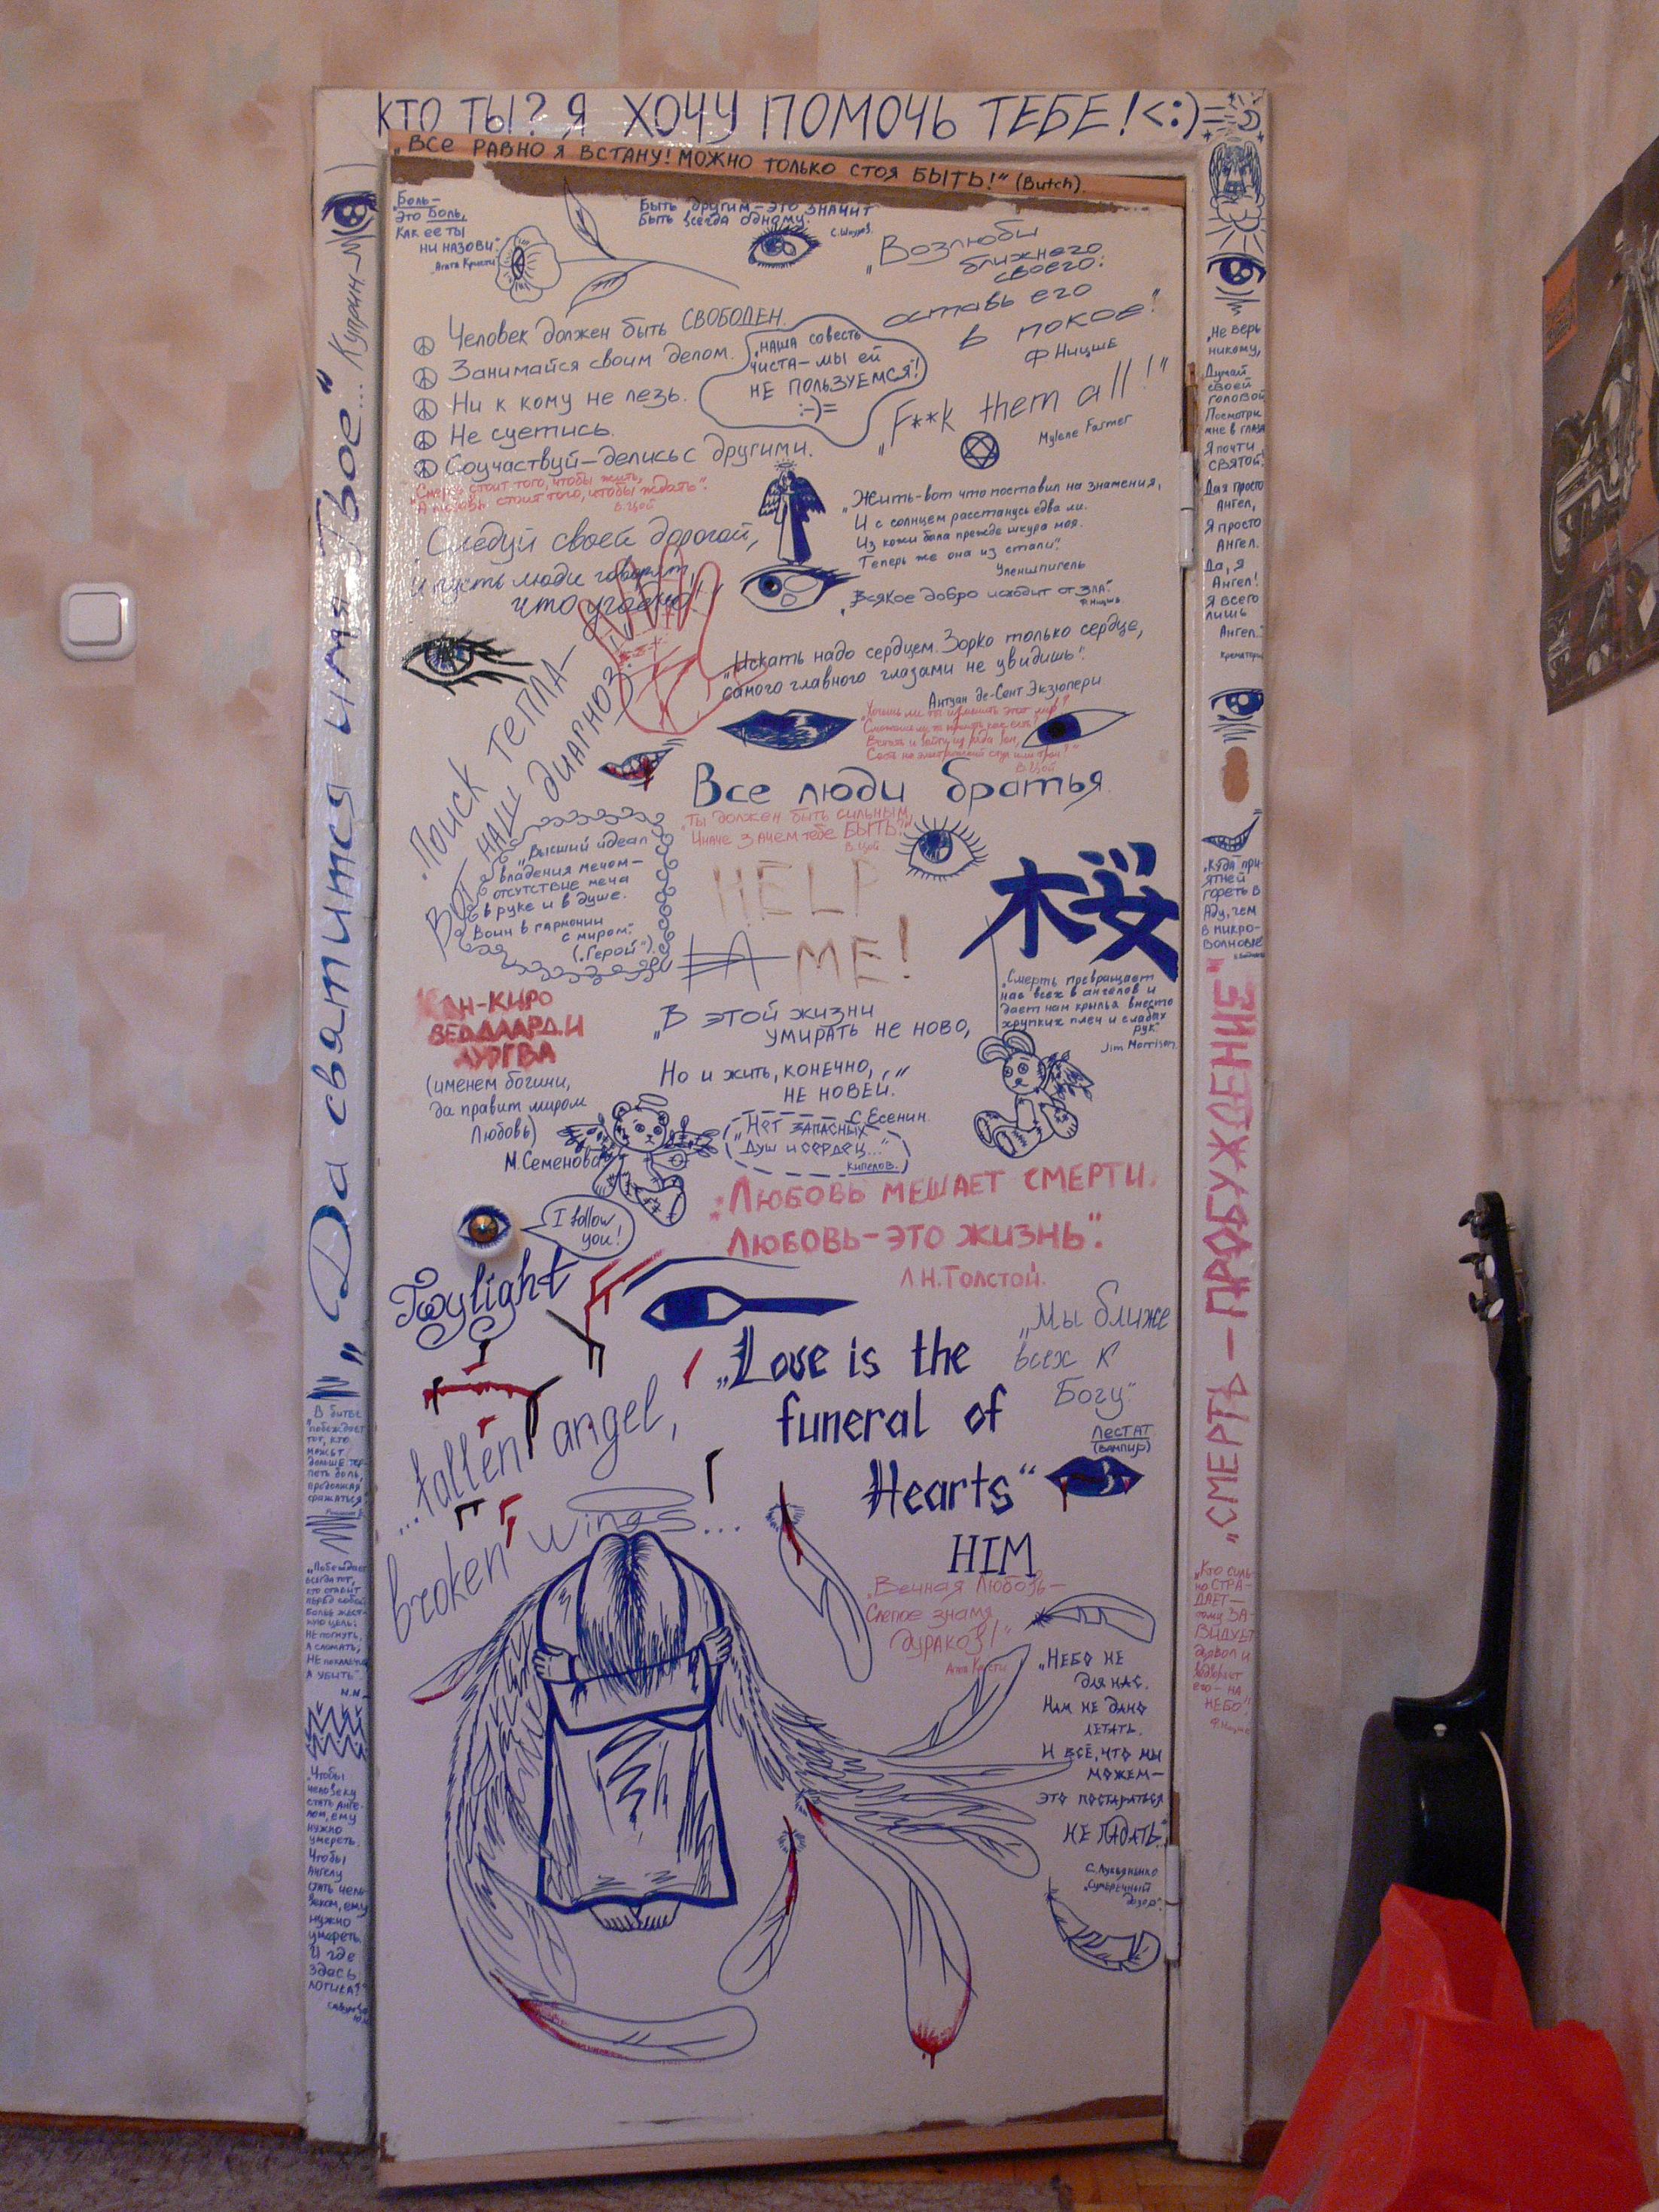 КТО ТЫ? Я ХОЧУ ПОМОЧЬ ТЕБЕ! <:)=
„ВСЕ РАВНО Я ВСТАНУ! МОЖНО ТОЛЬКО СТОЯ БЫТЬ!“ (Butch)
„Да святится имя Твое...“ Куприн
„Боль –
это боль,
как ее ты
ни назови“
Агата Кристи
Быть другим – это значит
быть всегда одному.
„Возлюби
ближнего
своего:
оставь его
в покое!“
Ф Ницше
Человек должен быть СВОБОДЕН.
Занимайся своим делом.
Ни к кому не лезь.
Не суетись.
Соучаствуй – делись с другими.
„НАША СОВЕСТЬ
ЧИСТА – МЫ ЕЙ
НЕ ПОЛЬЗУЕМСЯ!“
:-)=
„F**k them all!“
Mylene Farmer
„Смерть стоит того, чтобы жить,
А любовь стоит того, чтобы ждать“.
В. Цой
„Следуй своей дорогой,
и пусть люди говорят,
что угодно!“
„Жить – вот что поставил на знамения,
И с солнцем расстанусь едва ли.
Из кожи была прежде шкура моя.
Теперь же она из стали“.
Уленшпигель
„Всякое добро исходит от зла“.
„Искать надо сердцем. Зорко только сердце,
самого главного глазами не увидишь“.
Антуан де-Сент Экзюпери
В. Цой
ПОИСК ТЕПЛА –
ВОТ НАШ ДИАГНОЗ!
Все люди братья.
„Ты должен быть сильным,
Иначе зачем тебе БЫТЬ?“
В. Цой
„Высший идеал
владения мечом –
отсутствие меча
в руке и в душе.
Воин в гармонии
с миром“.
(„Герой“)
HELP
ME!
桜
„Смерть превращает
нас всех в ангелов и
дает нам крылья вместо
хрупких плеч и слабых
рук“
Jim Morrison
КАН-КИРО
ВЕДДААРДИ
ЛУРГВА
(именем богини,
да правит миром
Любовь)
М.Семенова
„В ЭТОЙ ЖИЗНИ
УМИРАТЬ НЕ НОВО,
Но и жить, конечно,
НЕ НОВЕЙ.“
С. Есенин.
„Нет ЗАПАСНЫХ
Душ и сердец...“
Кипелов.
„ЛЮБОВЬ МЕШАЕТ СМЕРТИ.
ЛЮБОВЬ – ЭТО ЖИЗНЬ“.
Л.Н.Толстой.
I follow
you!
Twylight
„Love is the
funeral of
Hearts“
HIM
„Мы ближе
всех к
Богу“
ЛЕСТАТ
(вампир)
...fallen angel,
broken wings...
„Вечная Любовь –
Слепое знамя
ДУРАКОВ!“
Агата Кристи
„НЕБО НЕ
ДЛЯ НАС.
НАМ НЕ ДАНО
ЛЕТАТЬ.
И ВСЁ, ЧТО МЫ
МОЖЕМ –
ЭТО ПОСТАРАТЬСЯ
НЕ ПАДАТЬ“.
С.Лукьяненко
„Сумеречный
дозор“.
„Не верь
никому,
Думай
своей
головой
Посмотри
мне в глаза
Я почти
святой!
Да я просто
Ангел,
Я просто
Ангел.
Да, я
Ангел!
Я всего
лишь
Ангел..“
Крематорий
„Куда при-
ятней
гореть в
Аду, чем
в микро-
волновке“
„СМЕРТЬ – ПРОБУЖДЕНИЕ“
„Кто силь-
но СТРА-
ДАЕТ –
тому ЗА-
ВИДУЕТ
дьявол и
его – НА
НЕБО“.
Ф.Ницше
„В битве
побеждает
тот, кто
может
дольше тер-
петь боль,
продолжая
сражаться“.
„Побеждает
всегда тот,
кто ставит
перед собой
более жест-
кую цель:
НЕ ПОГНУТЬ,
А СЛОМАТЬ;
А УБИТЬ“.
„Чтобы
человеку
стать Анге-
лом, ему
нужно
умереть.
Чтобы
Ангелу
стать чело-
веком, ему
нужно
умереть.
И где
здесь
логика?“